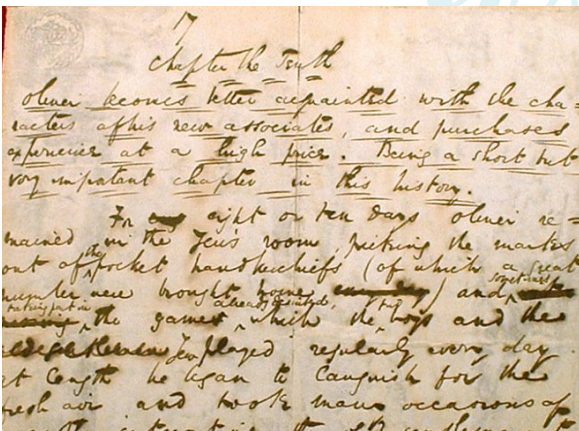 17
Chapter the Tenth
Oliver becomes better acquainted with the cha-
racters of his new associates, and purchases
experience at a high price. Being a short but
very important chapter in this history.
For eight or ten days Oliver re-
mained in the Jew's room, picking the marks
out of the pocket handkerchiefs (of which a great
number were brought home) and sometimes
taking part in the games already described, which the two boys and the
Jew played regularly every day.
At length he began to languish for the
fresh air and took many occasions of